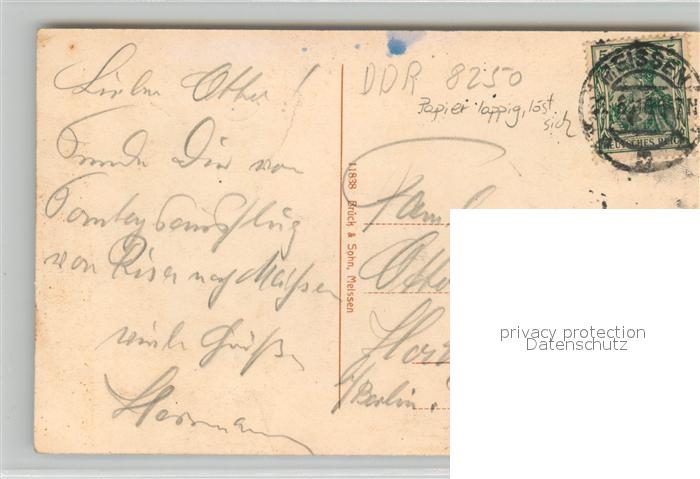 Lieber Otto!
Sende Dir von
Sonntagsausflug
von Riesa nach Meißen
viele Grüße
Hermann
11838 Brück & Sohn, Meissen
DDR 8250
Papier lappig, löst
sich
MEISSEN
DEUTSCHES REICH
Otto
i/Berlin.
privacy protection
Datenschutz